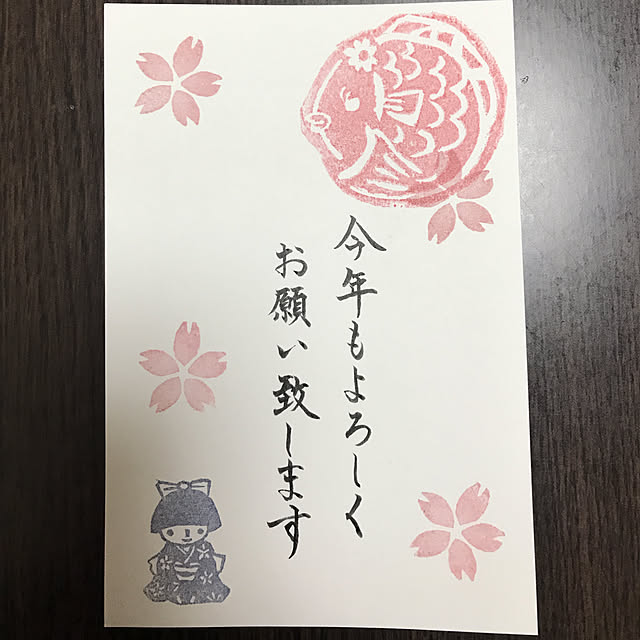 今年もよろしく
お願い致します